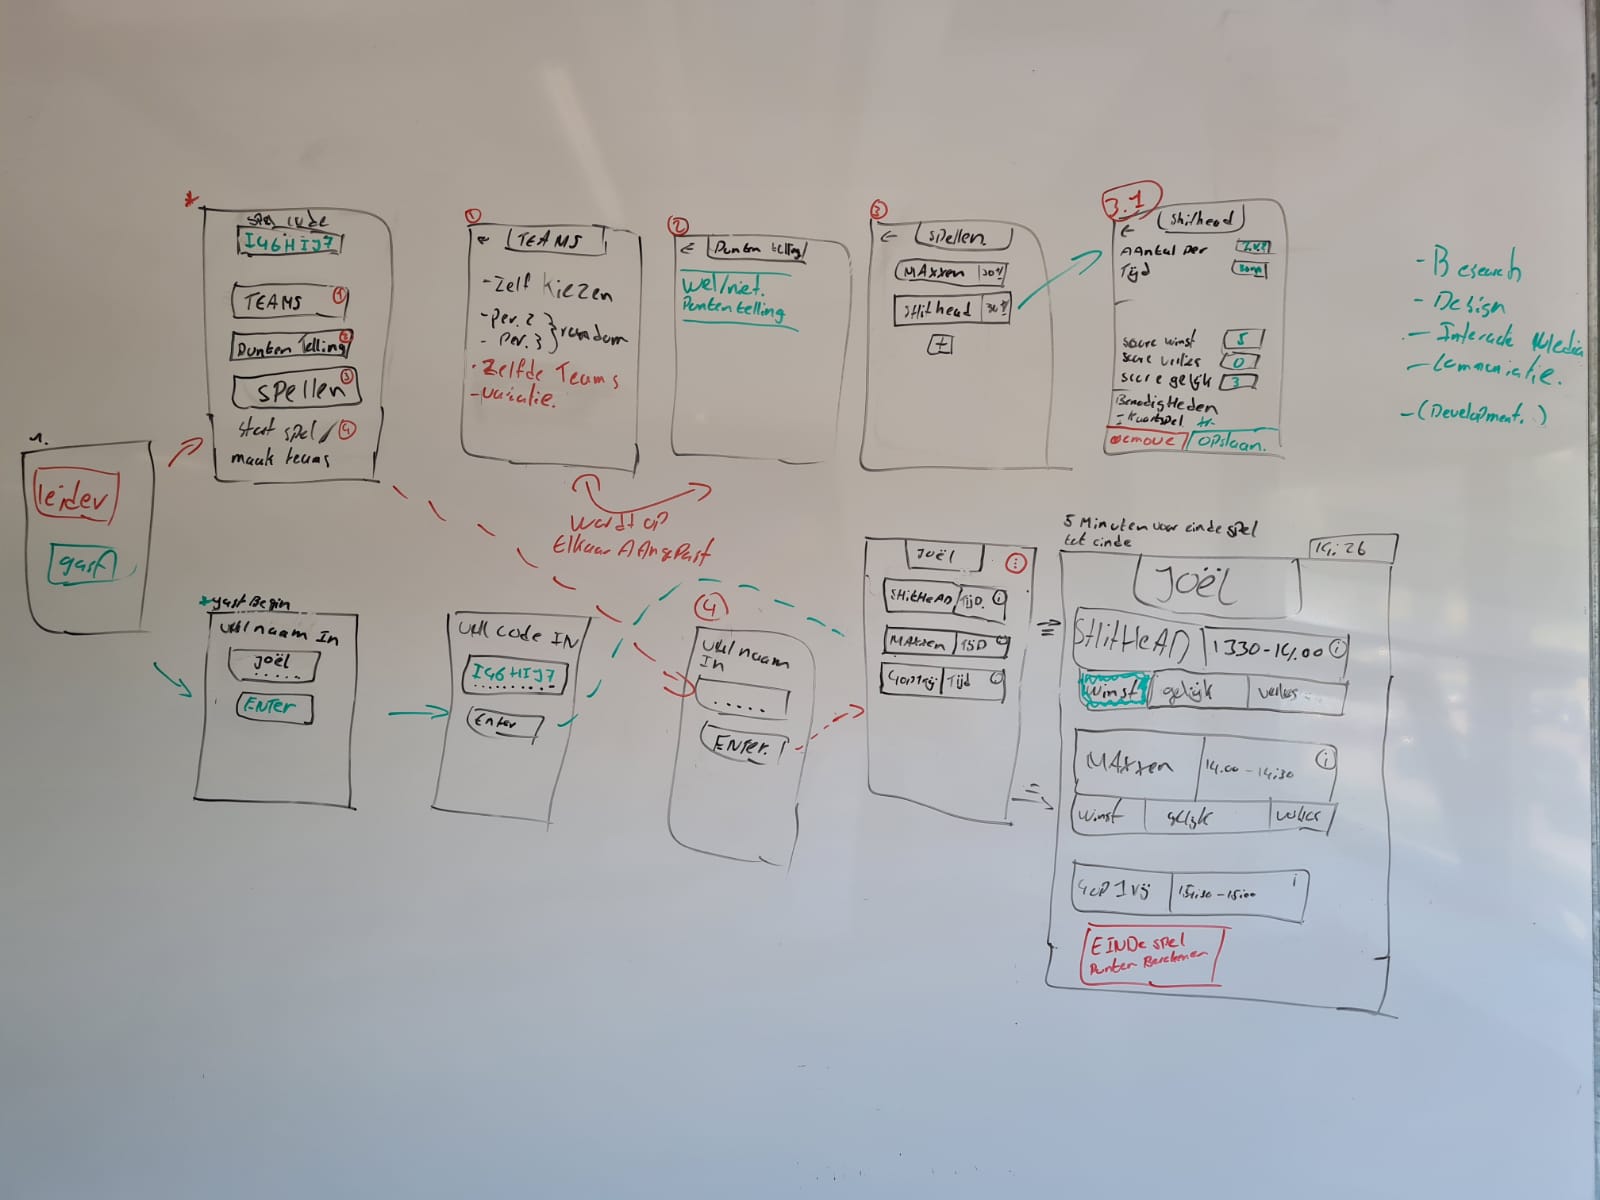 1.
leider
gast
*
spel code
I46HIJ7
TEAMS 1
Punten Telling 2
SPellen 3
start spel / 4
maak teams
1
←
TEAMS
- Zelf kiezen
- per. 2
- per. 3
} random
- Zelfde Teams
- variatie.
2
←
Punten telling
Wel/niet.
Punten telling
Wordt op
Elkaar AAngePast
3
←
Spellen.
MAxxen
SHithead
+
3.1
Shithead
←
AAntal per
Tijd
score winst 5
score verlies 0
score gelijk 3
Benodigdheden
- kaartspel
Remove
opslaan.
- Research
- Design
- Interactie Media
- Communicatie.
- (Development..)
* gast Begin
Vul naam In
Joël
ENTER
Vul code IN
I46HIJ7
Enter
4
Vul naam
In
.....
ENTer.
Joël
SHitHeAD TijD. i
MAxxen TijD
Tijd
5 Minuten voor einde spel
tot einde
14:26
Joël
SHitHeAD 1330-14.00 i
Winst gelijk verlies
MAxxen 14.00 - 14:30 i
Winst gelijk verlies
i
EINDe spel
Punten Berekenen